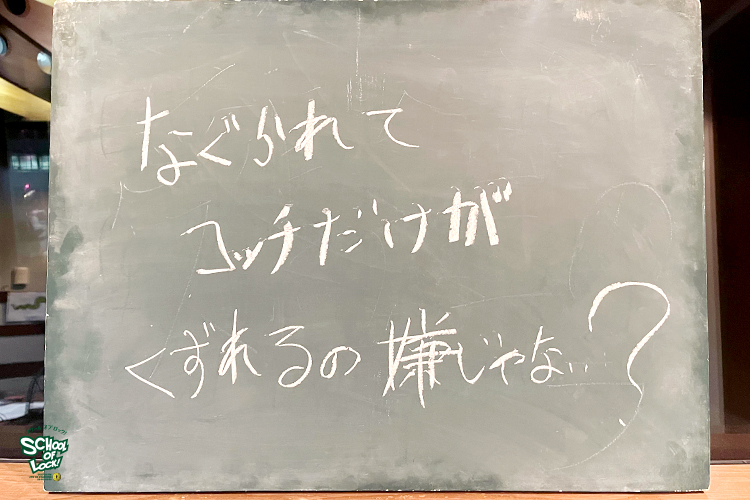 なぐられて
コッチだけが
くずれるの嫌じゃない?
SCHOOL
OF
LOCK!